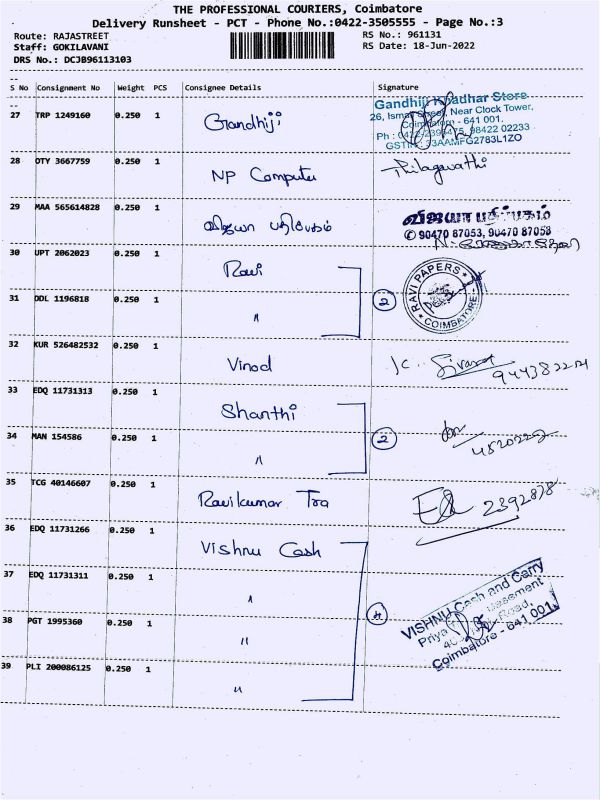 THE PROFESSIONAL COURIERS, Coimbatore
Delivery Runsheet - PCT - Phone No.:0422-3505555 - Page No.:3
Route: RAJASTREET
RS No.: 961131
Staff: GOKILAVANI
RS Date: 18-Jun-2022
DRS No.: DCJB96113103
S No Consignment No Weight PCS Consignee Details Signature
27 TRP 1249160 0.250 1 Gandhiji
Gandhiji Khadhar Store
26, Near Clock Tower,
Coimbatore - 641 001.
98422 02233
GSTIN: 33AAMFG2783L1ZO
28 OTY 3667759 0.250 1 NP Computer Thilagavathi
29 MAA 565614828 0.250 1 விஜயா பதிப்பகம்
விஜயா பதிப்பகம்
✆ 90470 87053, 90470 87058
30 UPT 2062023 0.250 1 Ravi
RAVI PAPERS
COIMBATORE
31 DDL 1196818 0.250 1 " 2
32 KUR 526482532 0.250 1 Vinod
33 EDQ 11731313 0.250 1 Shanthi
34 MAN 154586 0.250 1 " 2
35 TCG 40146607 0.250 1 Ravikumar Tra 2392878
36 EDQ 11731266 0.250 1 Vishnu Cash
37 EDQ 11731311 0.250 1 "
38 PGT 1995360 0.250 1 " 4
VISHNU Cash and Carry
Priya Basement
Road,
Coimbatore - 641 001.
39 PLI 200086125 0.250 1 "